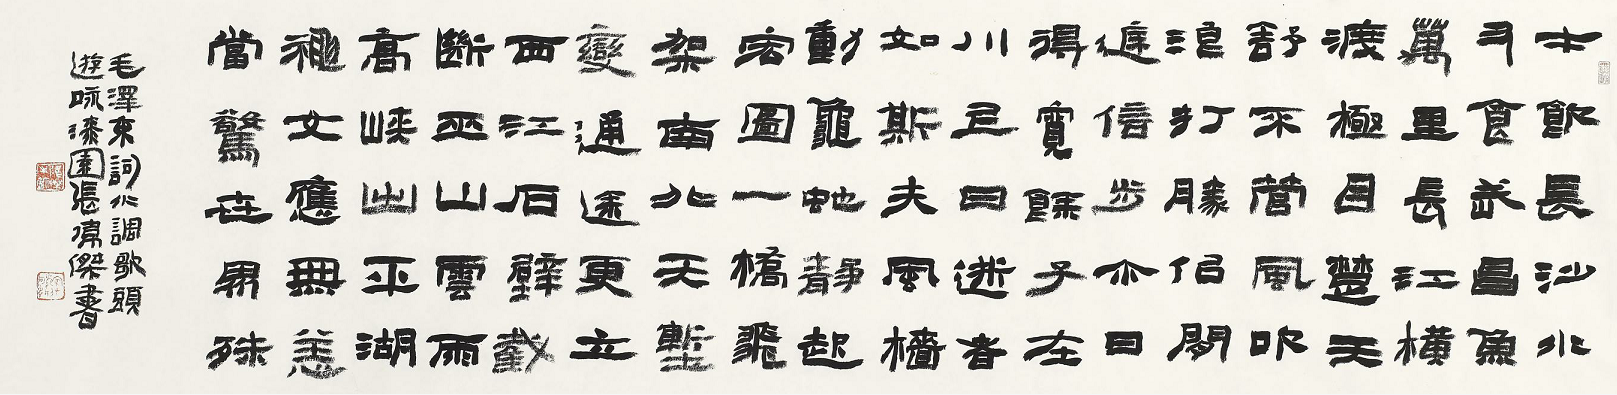 才飲長沙水
又食武昌魚
萬里長江橫
渡極目楚天
舒不管風吹
浪打勝佀閒
庭信步今日
得寬餘子在
川上曰逝者
如斯夫風檣
動龜虵靜起
宏圖一橋飛
架南北天塹
變通途更立
西江石壁截
斷巫山雲雨
高峽出平湖
神女應無恙
當驚世界殊
毛澤東詞水調歌頭
遊咏漆園張傑書